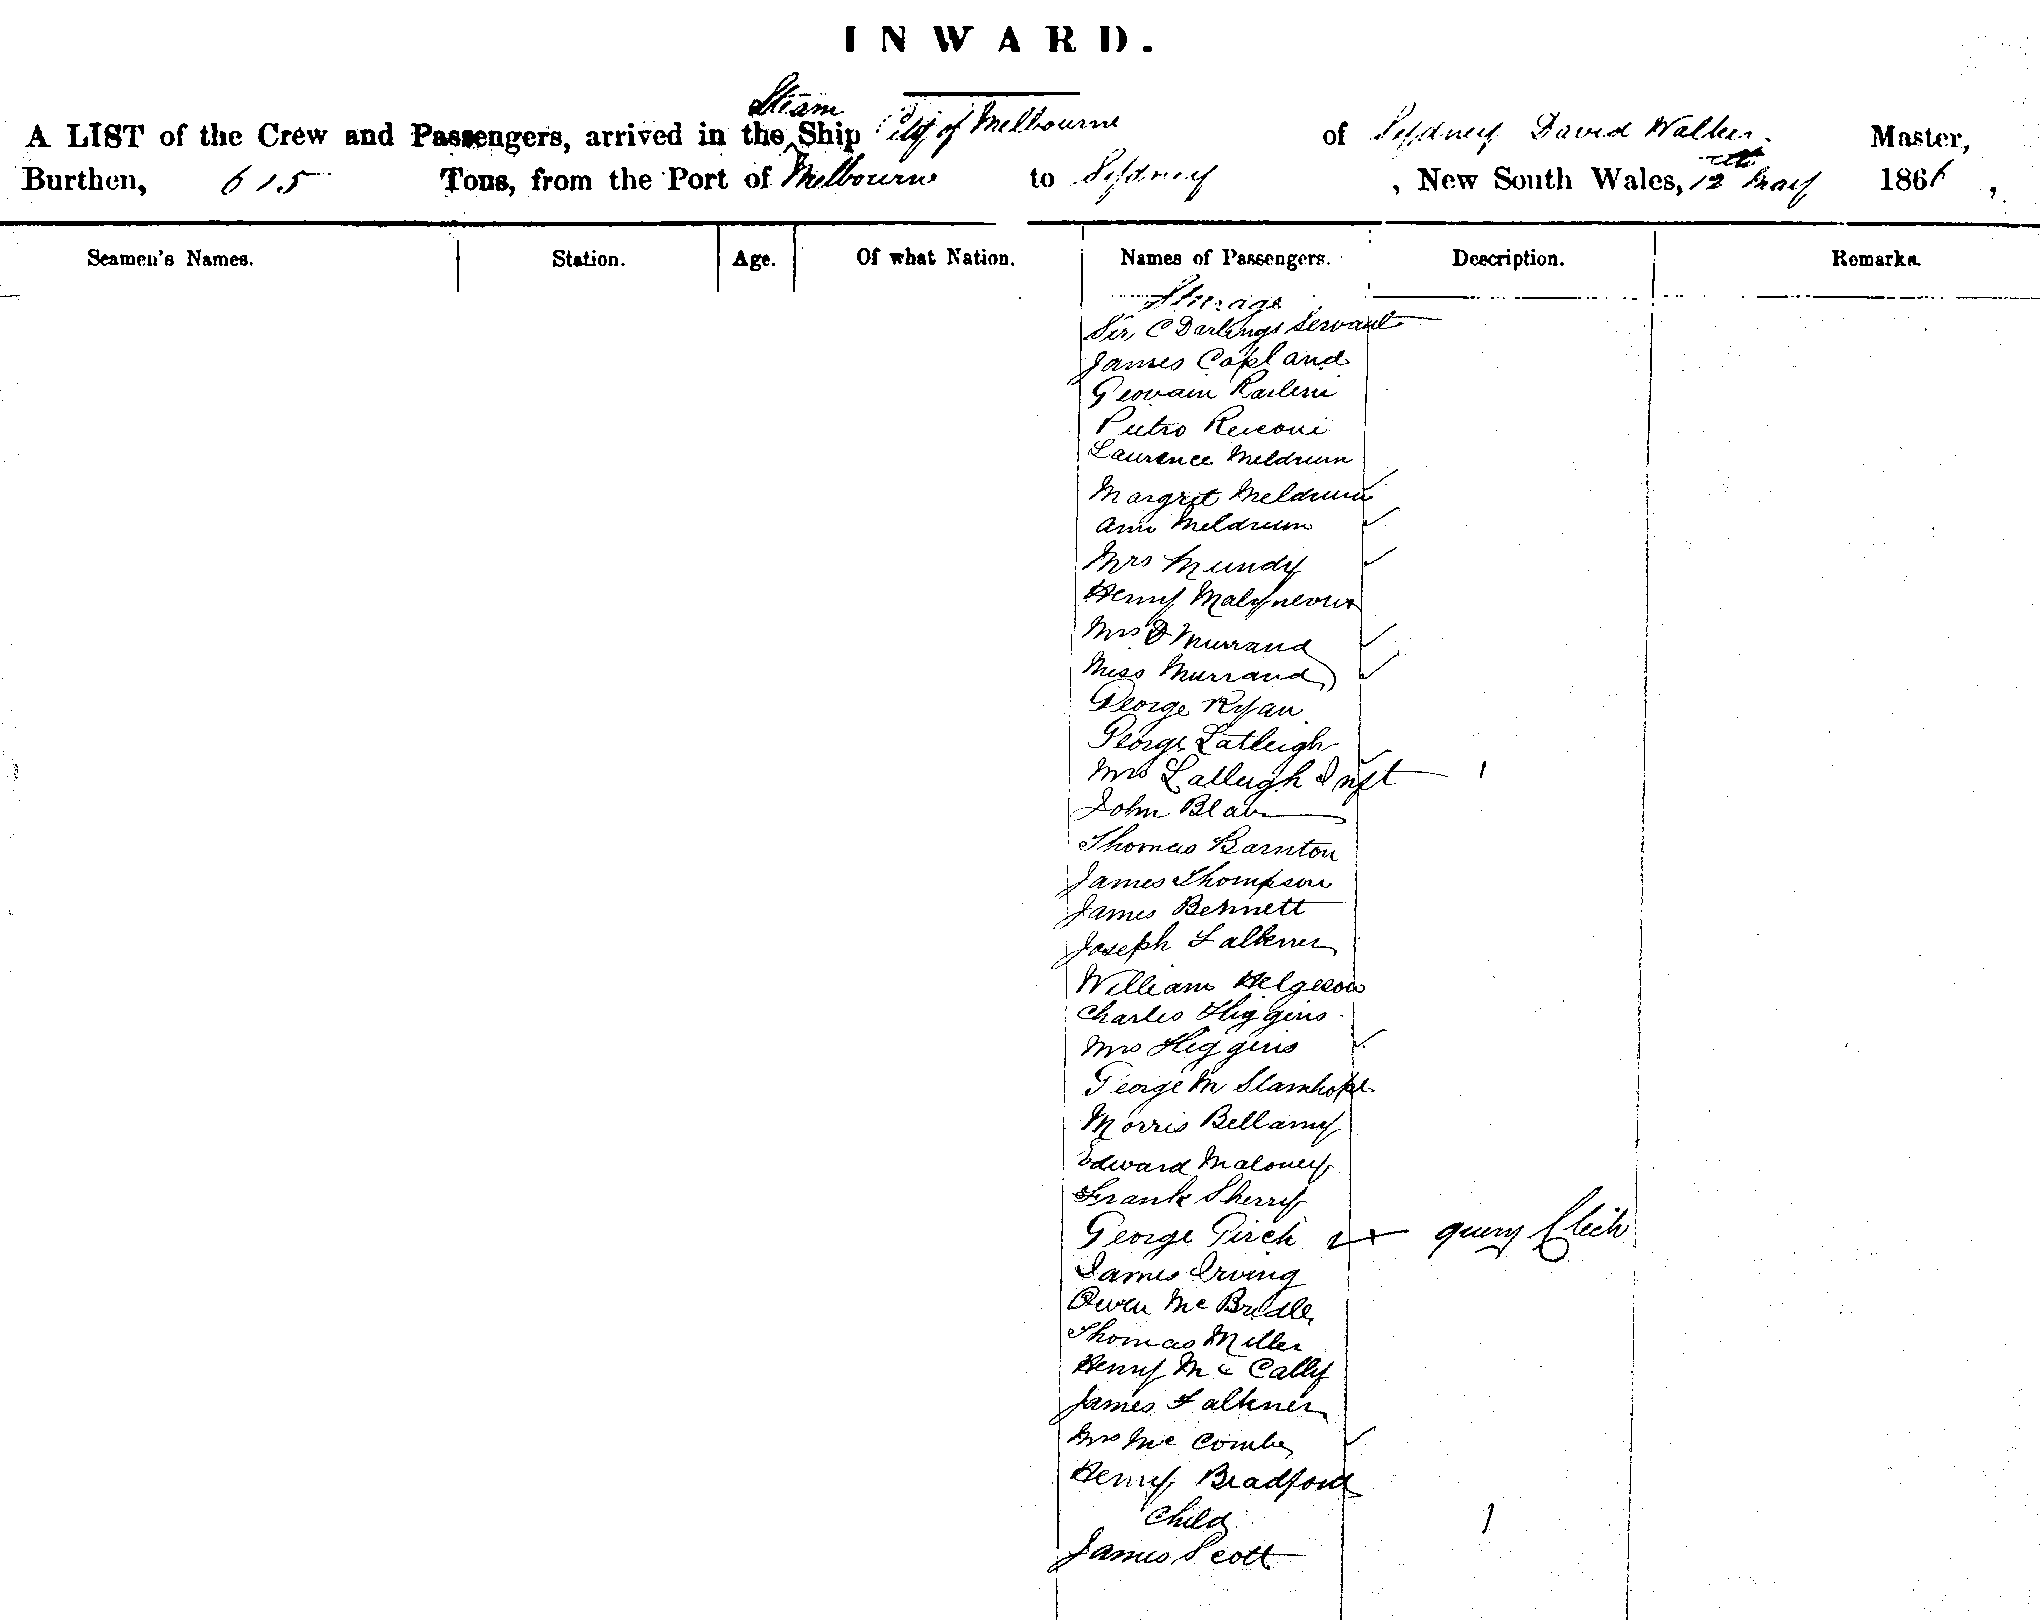 INWARD.
Steam
A LIST of the Crew and Passengers, arrived in the Ship City of Melbourne of Sydney David Walker Master,
Burthen, 615 Tons, from the Port of Melbourne to Sydney, New South Wales, 12th May 1866,
Seamen's Names. Station. Age. Of what Nation. Names of Passengers. Description. Remarks.
Steerage
Sir C Darlings Servant
James Copland
Pietro
Laurence Meldrum
Margret Meldrum
Ann Meldrum
Mrs Mundy
Henry Malyneoux
Mrs D Murrand
Miss Murrand
George Ryan
George Latleigh
Mrs Latleigh Inft 1
John Blair
Thomas Barnton
James Thompson
James Bennett
Joseph Falkner
William Helgeson
Charles Higgins
Mrs Higgins
George M Stanhope
Morris Bellamy
Edward Maloney
Frank Sherry
George Pirch query
James Irving
Owen Mc Bredle
Thomas Miller
Henry Mc Cally
James Falkner
Mrs Mc Combe
Henry Bradford
Child 1
James Scott